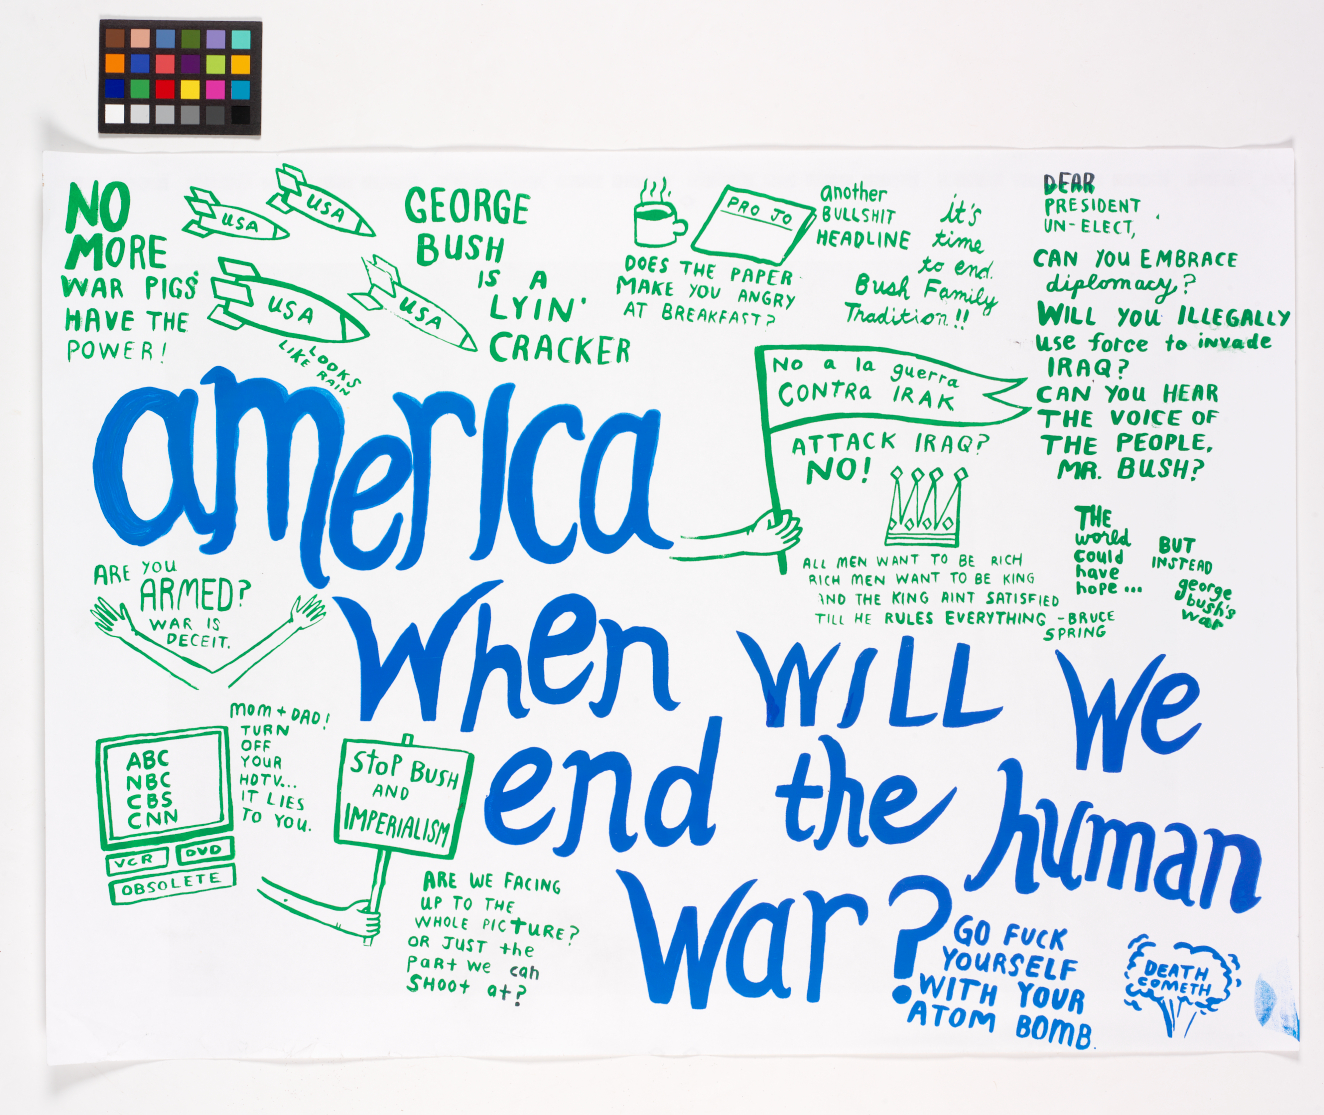 NO
MORE
WAR PIGS
HAVE THE
POWER!
USA
USA
USA
USA
LOOKS
LIKE RAIN
GEORGE
BUSH
IS A
LYIN'
CRACKER
PRO JO
DOES THE PAPER
MAKE YOU ANGRY
AT BREAKFAST?
another
BULLSHIT
HEADLINE
it's
time
to end
Bush Family
Tradition!!
DEAR
PRESIDENT
UN-ELECT,
CAN YOU EMBRACE
diplomacy?
WILL YOU ILLEGALLY
use force to invade
IRAQ?
CAN YOU HEAR
THE VOICE OF
THE PEOPLE,
MR. BUSH?
No a la guerra
CONTRA IRAK
ATTACK IRAQ?
NO!
ALL MEN WANT TO BE RICH
RICH MEN WANT TO BE KING
AND THE KING AINT SATISFIED
TILL HE RULES EVERYTHING -BRUCE
SPRING
THE
world
could
have
hope...
BUT
INSTEAD
george
bush's
war
america
when will we
end the human
war?
ARE YOU
ARMED?
WAR IS
DECEIT.
MOM + DAD!
TURN
OFF
YOUR
HDTV...
IT LIES
TO YOU.
ABC
NBC
CBS
CNN
VCR DVD
OBSOLETE
STOP BUSH
AND
IMPERIALISM
ARE WE FACING
UP TO THE
WHOLE PICTURE?
OR JUST the
part we can
SHOOT at?
GO FUCK
YOURSELF
WITH YOUR
ATOM BOMB.
DEATH
COMETH